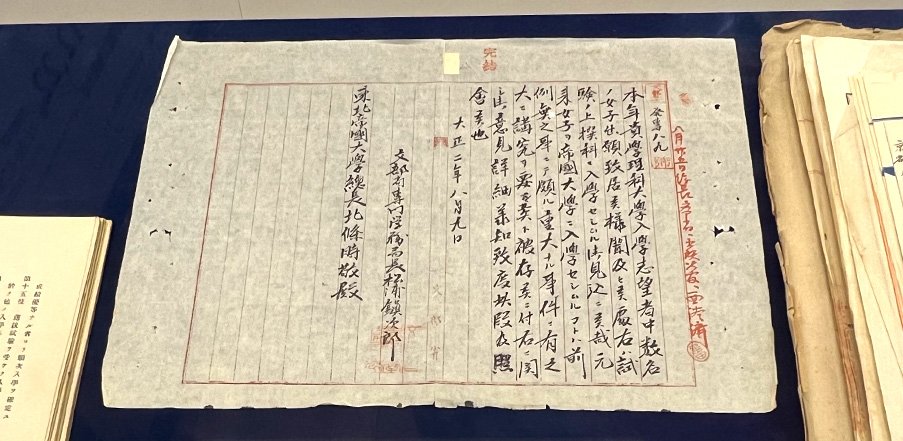 完結
發專八九
本年貴學理科大學入學志望者中数名
ノ女子出願致居候様聞及候處右ハ試
験ノ上撰科ニ入學セシムル御見込ニ候哉元
来女子ヲ帝國大學ニ入學セシムルコトハ前
例無之事ニテ頗ル重大ナル事件ニ有之
大ニ講究ヲ要シ候ト被存候ニ付右ニ関
シ御意見詳細承知致度此段及照
會候也
大正二年八月九日
文部省専門学務局長松浦鎮次郎
東北帝國大學總長北條時敬殿
成績優等ナル者ヨリ順次入學ヲ確定ス